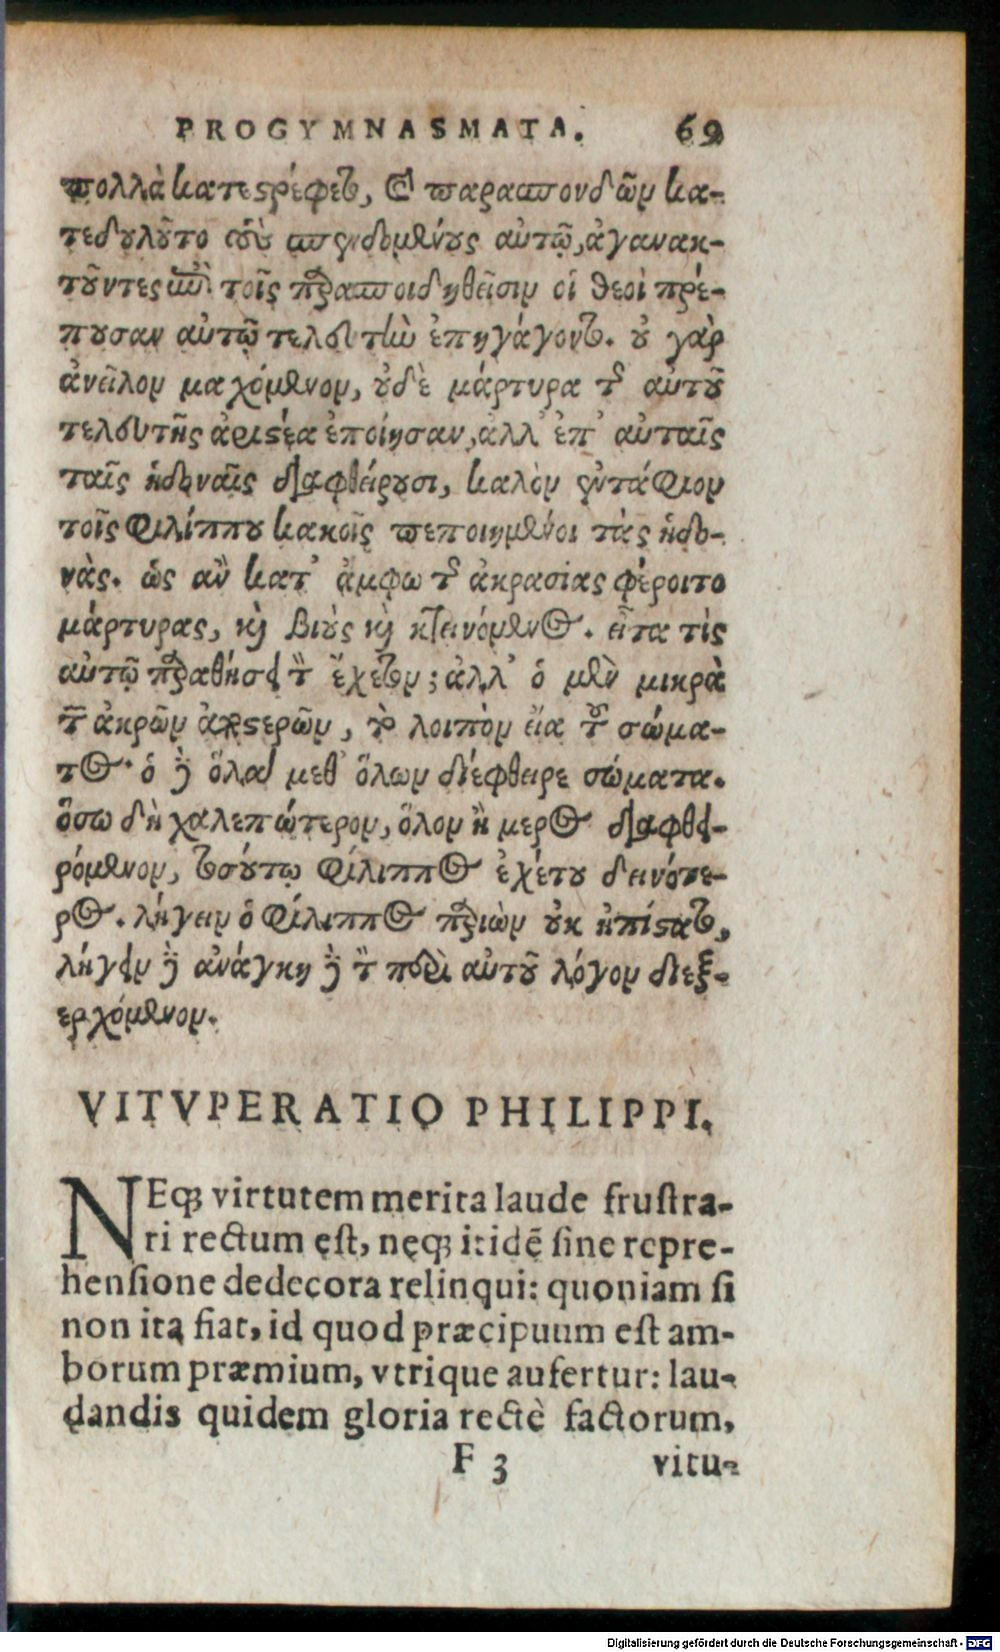 PROGYMNASMATA. 69
πολλὰ κατεστρέφετο, καὶ παρασπονδῶν κα-
τεδουλοῦτο τοὺς σπενδομένους αὐτῷ, ἀγανακ-
τοῦντες ἐπὶ τοῖς παρασπονδηθεῖσιν οἱ θεοὶ πρέ-
πουσαν αὐτῷ τελευτὴν ἐπηγάγοντο. οὐ γὰρ
ἀνεῖλον μαχόμενον, οὐδὲ μάρτυρα τῆς αὐτοῦ
τελευτῆς ἀριστέα ἐποίησαν, ἀλλ' ἐπ' αὐταῖς
ταῖς ἡδοναῖς διαφθείρουσι, καλὸν ἐντάφιον
τοῖς Φιλίππου κακοῖς πεποιημένοι τὰς ἡδο-
νάς. ὡς ἂν κατ' ἄμφω τῆς ἀκρασίας φέροιτο
μάρτυρας, καὶ βιοὺς καὶ κτεινόμενος. εἶτα τίς
αὐτῷ παραθήσει τὸν ἔχετον; ἀλλ' ὁ μὲν μικρὰ
τῶν ἀκρῶν ἀποστερῶν, τὸ λοιπὸν εἴα τοῦ σώμα-
τος. ὁ δὲ ὅλα μεθ' ὅλων διέφθειρε σώματα.
ὅσῳ δὴ χαλεπώτερον, ὅλον ἢ μέρος διαφθει-
ρόμενον, τοσούτῳ Φίλιππος ἐχέτου δεινότε-
ρος. λήγειν ὁ Φίλιππος παριὼν οὐκ ἠπίστατο,
λήγειν δὲ ἀνάγκη δὲ τὸν περὶ αὐτοῦ λόγον διεξ-
ερχόμενον.
VITVPERATIO PHILIPPI.
NEq; virtutem merita laude frustra-
ri rectum est, neq; itidẽ sine repre-
hensione dedecora relinqui: quoniam si
non ita fiat, id quod præcipuum est am-
borum præmium, vtrique aufertur: lau-
dandis quidem gloria rectè factorum,
F 3 vitu-
Digitalisierung gefördert durch die Deutsche Forschungsgemeinschaft - DFG